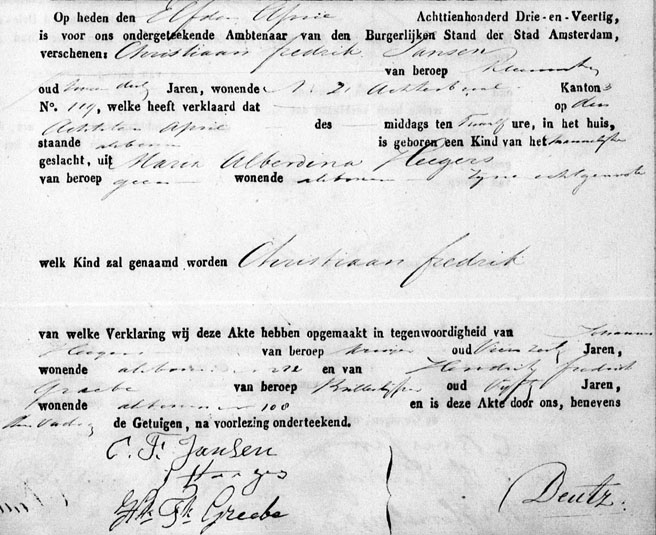 Op heden den Elfden April Achttienhonderd Drie-en-Veertig,
is voor ons ondergeteekende Ambtenaar van den Burgerlijken Stand der Stad Amsterdam,
verschenen: Christiaan fredrik Jansen
van beroep
oud Jaren, wonende N 21 Kanton
No. 119, welke heeft verklaard dat op den
Achtsten April des middags ten Twaalf ure, in het huis,
staande alsboven is geboren een Kind van het mannelijke
geslacht, uit Maria Alberdina Heegers
van beroep geen wonende alsboven zijne echtgenoote
welk Kind zal genaamd worden Christiaan fredrik
van welke Verklaring wij deze Akte hebben opgemaakt in tegenwoordigheid van Johannes
Heegers van beroep oud Jaren,
wonende alsboven en van Hendrik fredrik
Greebe van beroep oud Jaren,
wonende alsboven 108 en is deze Akte door ons, benevens
den Vader de Getuigen, na voorlezing onderteekend.
C. F. Jansen
Hk. Fk. Greebe
Deutz.